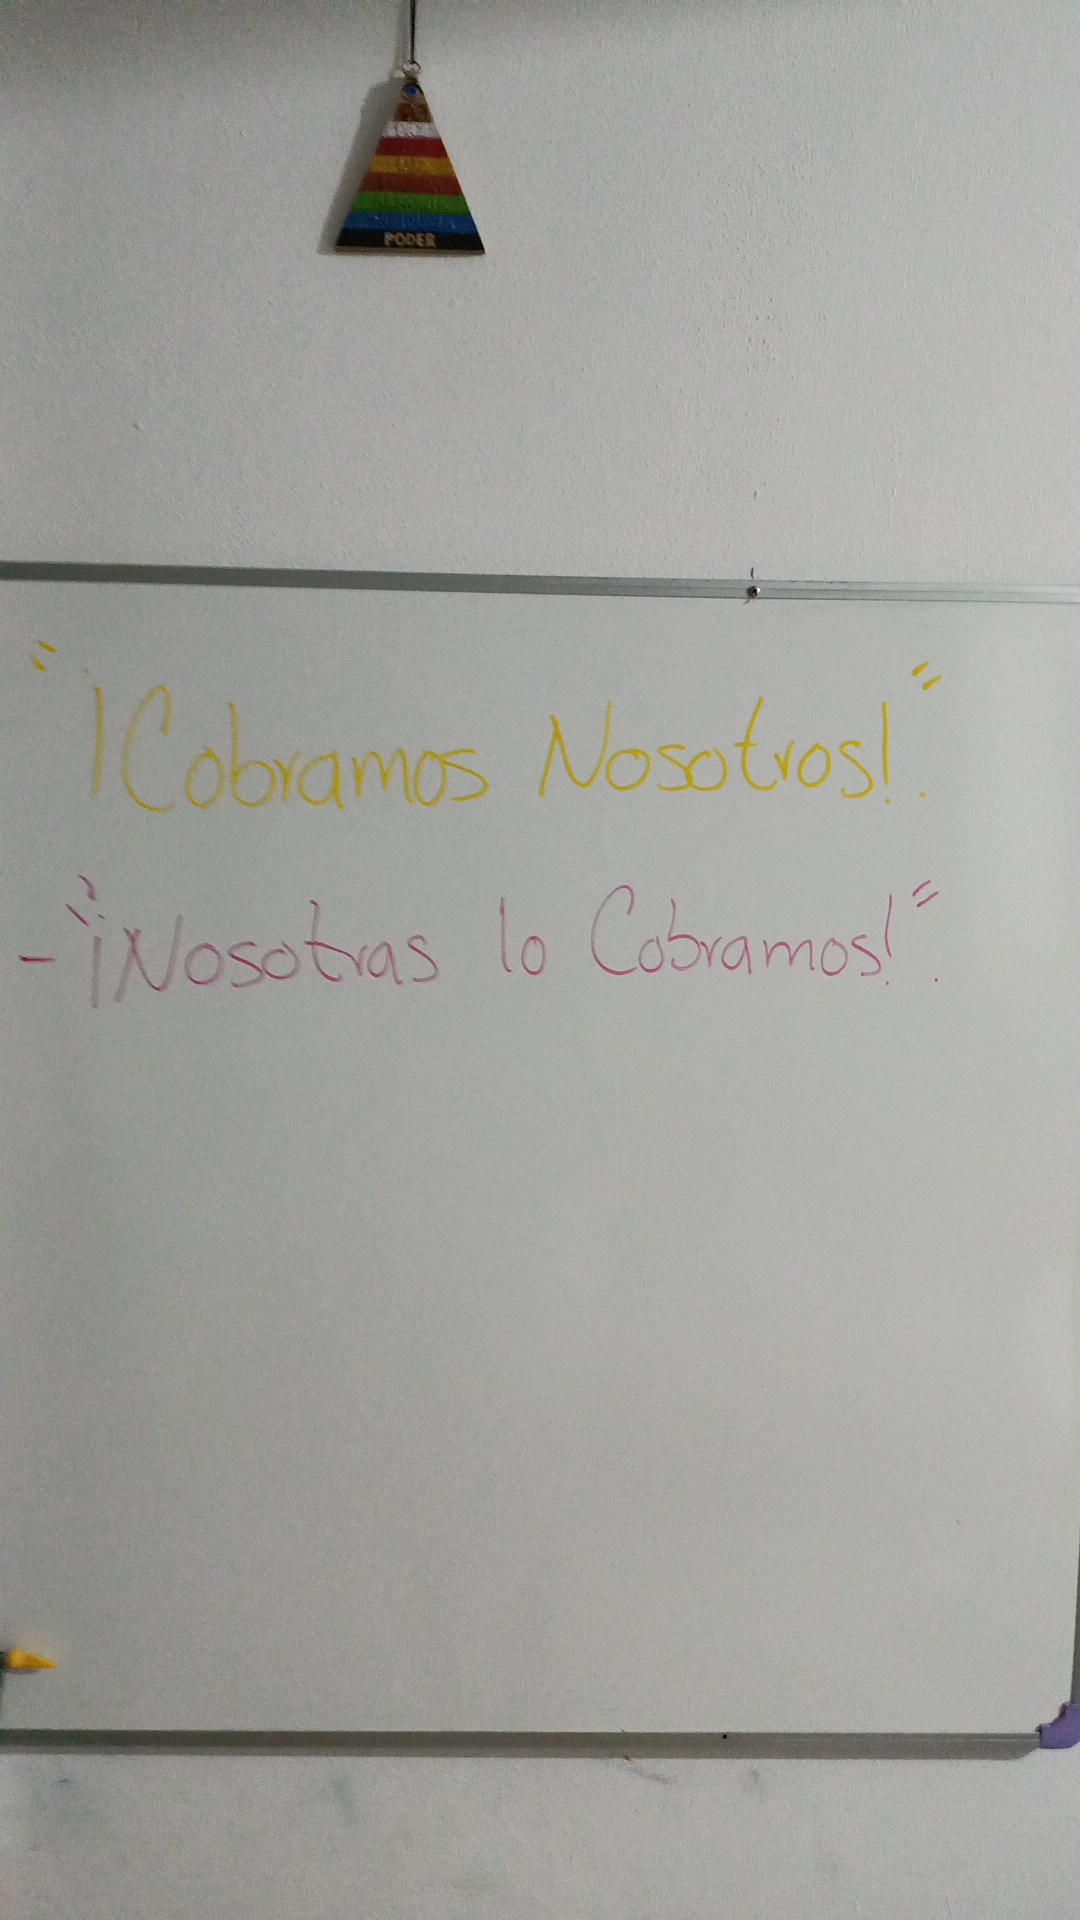 PODER
"¡Cobramos Nosotros!".
-"¡Nosotras lo Cobramos!".